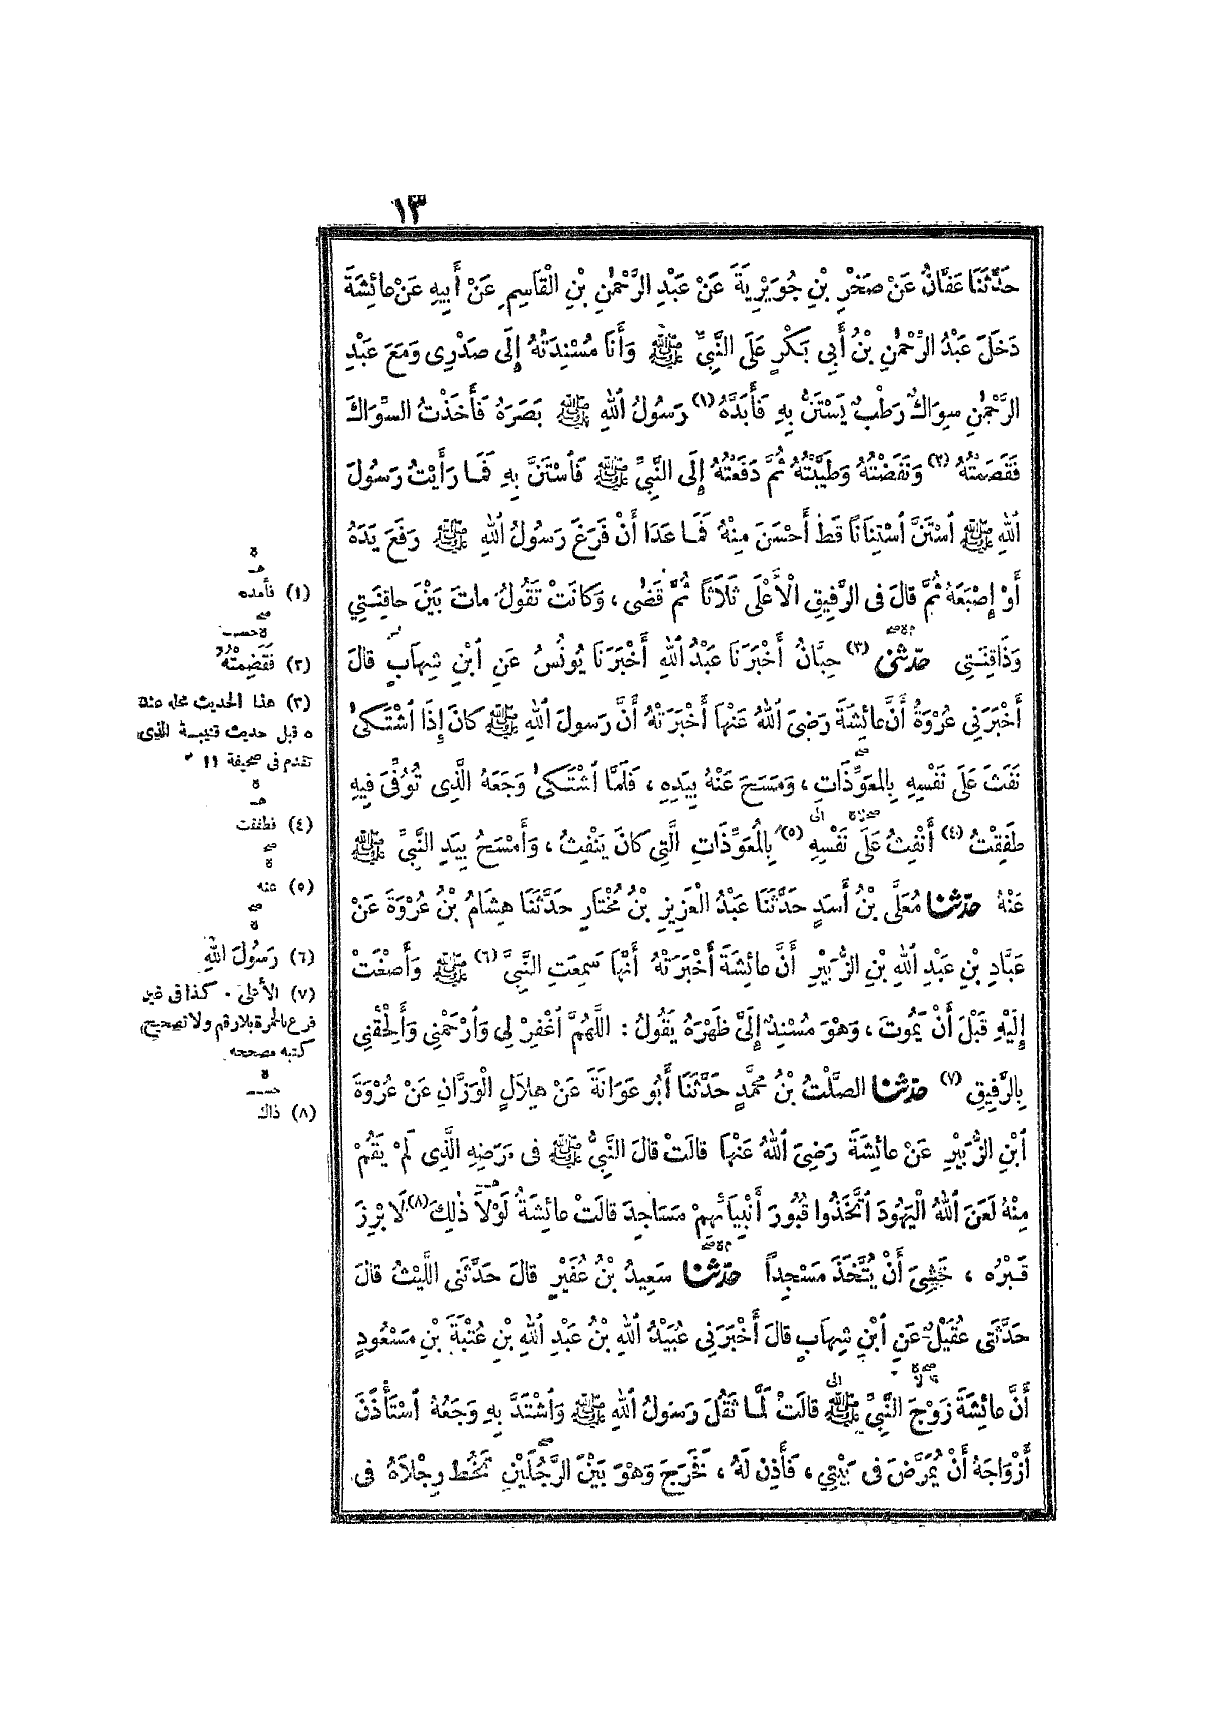 ١٣
حَدَّثَنَا عَفَّانُ عَنْ صَخْرِ بْنِ جُوَيْرِيَةَ عَنْ عَبْدِ الرَّحْمٰنِ بْنِ الْقَاسِمِ عَنْ أَبِيهِ عَنْ عائِشَةَ
دَخَلَ عَبْدُ الرَّحْمٰنِ بْنُ أَبِي بَكْرٍ عَلَى النَّبِيِّ ﷺ وَأَنَا مُسْنِدَتُهُ إِلَى صَدْرِى وَمَعَ عَبْدِ
الرَّحْمٰنِ سِوَاكٌ رَطْبٌ يَسْتَنُّ بِهِ فَأَبَدَّهُ (١) رَسُولُ اللهِ ﷺ بَصَرَهُ فَأَخَذْتُ السِّوَاكَ
فَقَصَمْتُهُ (٢) وَنَفَضْتُهُ وَطَيَّبْتُهُ ثُمَّ دَفَعْتُهُ إِلَى النَّبِيِّ ﷺ فَاسْتَنَّ بِهِ فَمَا رَأَيْتُ رَسُولَ
اللهِ ﷺ اسْتَنَّ اسْتِنَانًا قَطُّ أَحْسَنَ مِنْهُ فَمَا عَدَا أَنْ فَرَغَ رَسُولُ اللهِ ﷺ رَفَعَ يَدَهُ
أَوْ إِصْبَعَهُ ثُمَّ قالَ فى الرَّفِيقِ الْأَعْلَى ثَلَاثًا ثُمَّ قَضٰى ، وَكَانَتْ تَقُولُ ماتَ بَيْنَ حاقِنَتِي
وَذَاقِنَتِي حدّثنى (٣) حِبَّانُ أَخْبَرَنَا عَبْدُ اللهِ أَخْبَرَنَا يُونُسُ عَنِ ابْنِ شِهَابٍ قالَ
أَخْبَرَنِي عُرْوَةُ أَنَّ عائِشَةَ رَضِيَ اللهُ عَنْهَا أَخْبَرَتْهُ أَنَّ رَسولَ اللهِ ﷺ كانَ إِذَا اشْتَكىٰ
نَفَثَ عَلَى نَفْسِهِ بِالمعَوِّذَاتِ ، وَمَسَحَ عَنْهُ بِيَدِهِ ، فَلَمَّا اشْتَكىٰ وَجَعَهُ الَّذِى تُوُفِّىَ فِيهِ
طَفِقْتُ (٤) أَنْفِثُ عَلَى نَفْسِهِ (٥) بِالْمُعَوِّذَاتِ الَّتِي كانَ يَنْفِثُ ، وَأَمْسَحُ بِيَدِ النَّبِيِّ ﷺ
عَنْهُ حدّثنا مُعَلَّى بْنُ أَسَدٍ حَدَّثَنَا عَبْدُ الْعَزِيزِ بْنُ مُخْتَارٍ حَدَّثَنَا هِشَامُ بْنُ عُرْوَةَ عَنْ
عَبَّادِ بْنِ عَبْدِ اللهِ بْنِ الزُّبَيْرِ أَنَّ عائِشَةَ أَخْبَرَتْهُ أَنَّهَا سَمِعَتِ النَّبِيَّ (٦) ﷺ وَأَصْغَتْ
إِلَيْهِ قَبْلَ أَنْ يَمُوتَ ، وَهْوَ مُسْنِدٌ إِلَىَّ ظَهْرَهُ يَقُولُ : اللَّهُمَّ اغْفِرْ لِي وَارْحَمْنِي وَأَلْحِقْنِي
بِالرَّفِيقِ (٧) حدّثنا الصَّلْتُ بْنُ مُحَمَّدٍ حَدَّثَنَا أَبُو عَوَانَةَ عَنْ هِلَالٍ الْوَزَّانِ عَنْ عُرْوَةَ
ابْنِ الزُّبَيْرِ عَنْ عائِشَةَ رَضِيَ اللهُ عَنْهَا قالَتْ قالَ النَّبِيُّ ﷺ فى مَرَضِهِ الَّذِى لَمْ يَقُمْ
مِنْهُ لَعَنَ اللهُ الْيَهُودَ اتَّخَذُوا قُبُورَ أَنْبِيَائِهِمْ مَسَاجِدَ قالَتْ عائِشَةُ لَوْلاَ ذٰلِكَ (٨) لَأُبْرِزَ
قَبْرُهُ ، خَشِيَ أَنْ يُتَّخَذَ مَسْجِدًا حدّثنا سَعِيدُ بْنُ عُفَيْرٍ قالَ حَدَّثَنِي اللَّيْثُ قالَ
حَدَّثَنِي عُقَيْلٌ عَنِ ابْنِ شِهَابٍ قالَ أَخْبَرَنِي عُبَيْدُ اللهِ بْنُ عَبْدِ اللهِ بْنِ عُتْبَةَ بْنِ مَسْعُودٍ
أَنَّ عائِشَةَ زَوْجَ النَّبِيِّ ﷺ قالَتْ لَمَّا ثَقُلَ رَسُولُ اللهِ ﷺ وَاشْتَدَّ بِهِ وَجَعُهُ اسْتَأْذَنَ
أَزْوَاجَهُ أَنْ يُمَرَّضَ فى بَيْتِي ، فَأَذِنَّ لَهُ ، فَخَرَجَ وَهْوَ بَيْنَ الرَّجُلَيْنِ تَخُطُّ رِجْلاَهُ فى
(١) فأمده
(٢) فَقَضِمْتُهُ
(٣) هذا الحديث محله عند
ه قبل حديث قتيبة الذى
تقدم فى صحيفة ١١
(٤) فطفقت
(٥) عنه
(٦) رَسُولَ اللهِ
(٧) الأعلى . كذا فى غير
فرع بالحمرة بلا رقم ولا تصحيح
كتبه مصححه
(٨) ذاك